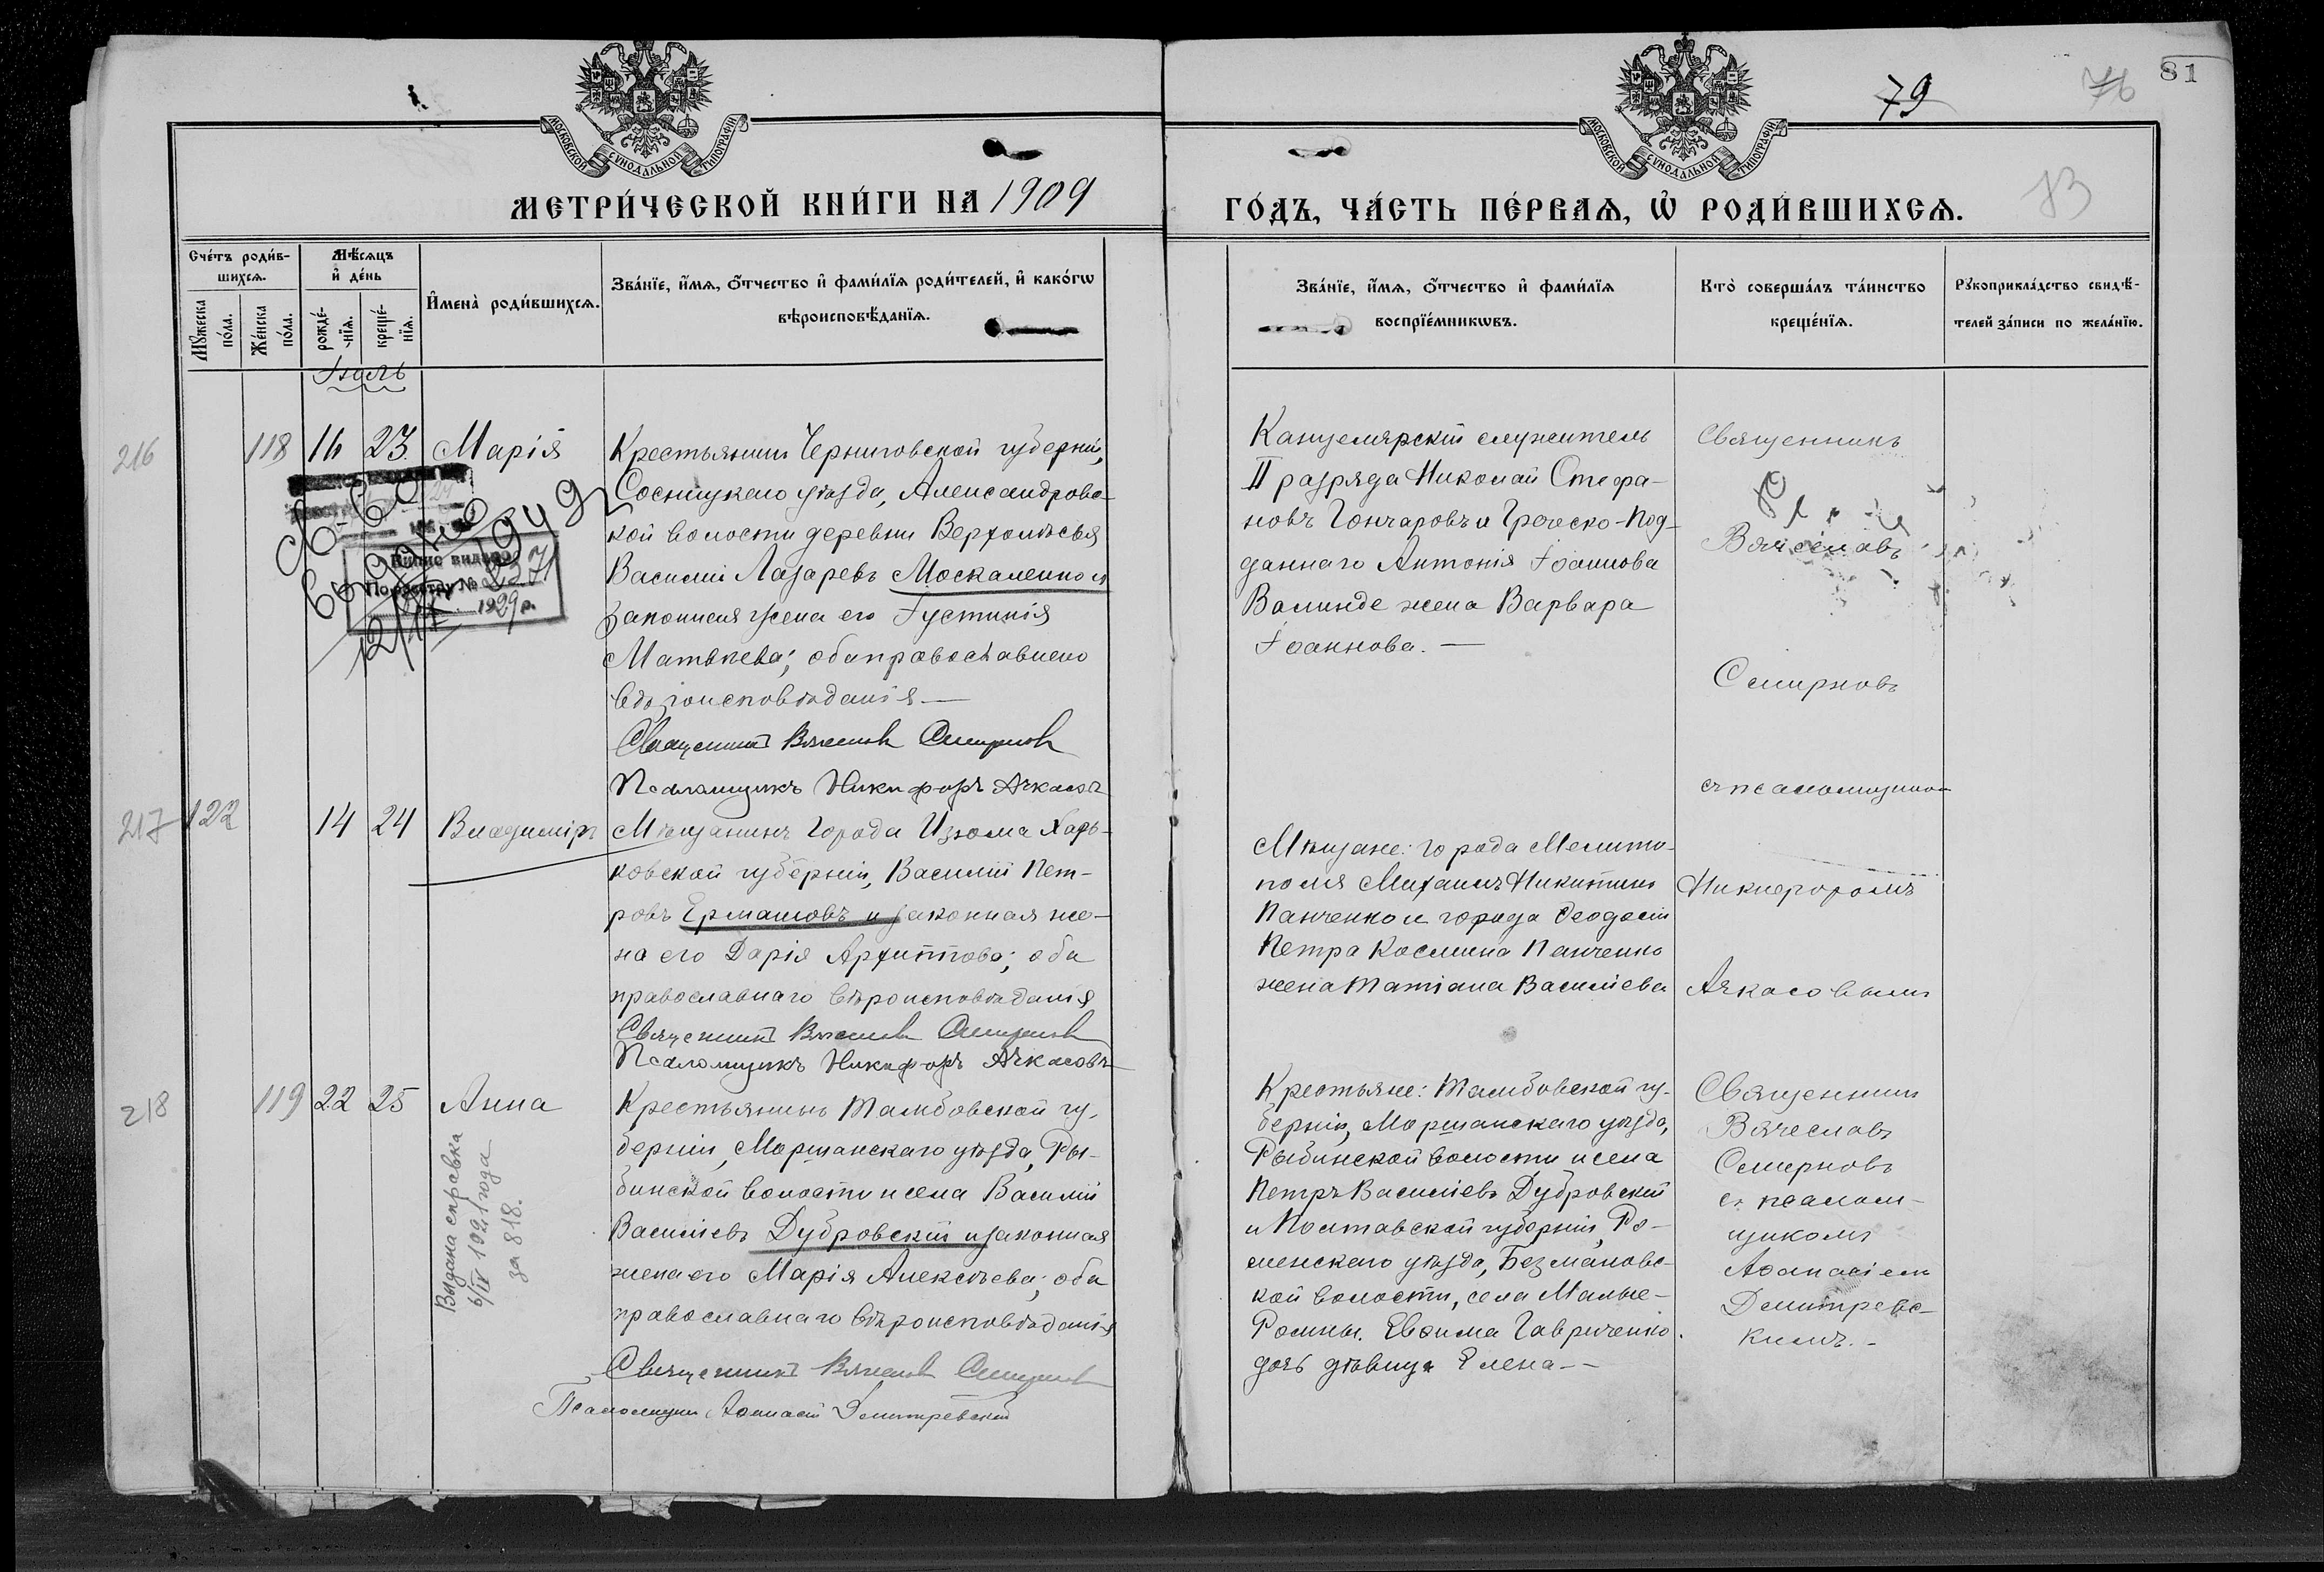 79
76
81
МОСКОВСКОЙ СѴНОДАЛЬНОЙ ТИПОГРАФІИ
МОСКОВСКОЙ СѴНОДАЛЬНОЙ ТИПОГРАФІИ
МЕТРИ́ЧЕСКОЙ КНИ́ГИ НА 1909
ГО́ДЪ, ЧА́СТЬ ПЕ́РВАѦ, Ѡ҆ РОДИ́ВШИХСѦ.
Сче́тъ роди́в-
шихсѧ.
Мꙋ́жеска по́ла.
Же́нска по́ла.
Мѣ́сѧцъ
и҆ де́нь
рожде́-нїѧ.
креще́-нїѧ.
И҆мена̀ роди́вшихсѧ.
Зва́нїе, и҆́мѧ, ѻ҆́тчество и҆ фами́лїѧ роди́телей, и҆ како́гѡ
вѣроисповѣ́данїѧ.
Зва́нїе, и҆́мѧ, ѻ҆́тчество и҆ фами́лїѧ
воспрїе́мникѡвъ.
Кто̀ соверша́лъ та́инство
креще́нїѧ.
Рꙋкоприкла́дство свидѣ́-
телей за́писи по жела́нїю.
Іюль
216
118
16
23
Марія
Крестьянинъ Черниговской губерніи,
Сосницкаго уѣзда, Александровс-
кой волости деревни Верхолѣсья
Василій Лазаревъ Москаленко и
законная жена его Іустинія
Матвѣева; оба православнаго
вѣроисповѣданія —
Священникъ Вячеславъ Смирновъ
Псаломщикъ Никифоръ Ачкасовъ
Св-во
выдано
1949
По реєстру № 2371
1929 р.
Канцелярскій служитель
II разряда Николай Стефа-
новъ Гончаровъ и Греческо-Под-
даннаго Антонія Іоаннова
Валинде жена Варвара
Іоаннова. —
Священникъ
Вячеславъ
Смирновъ
съ псаломщико-
217
122
14
24
Владиміръ
Мѣщанинъ города Изюма Харь-
ковской губерніи, Василій Пет-
ровъ Ермаковъ и законная же-
на его Дарія Архиппова; оба
православнаго вѣроисповѣданія
Священникъ Вячеславъ Смирновъ
Псаломщикъ Никифоръ Ачкасовъ
Мѣщане: города Мелито-
поля Михаилъ Никитинъ
Панченко и города Ѳеодосіи
Петра Космина Панченко
жена Татіана Василіева
Никифоромъ
Ачкасовымъ
218
119
22
25
Анна
Выдана справка
6/IV 1921 года
за 818.
Крестьянинъ Тамбовской гу-
берніи, Моршанскаго уѣзда, Ры-
бинской волости и села Василій
Василіевъ Дубровскій и законная
жена его Марія Алексѣева; оба
православнаго вѣроисповѣданія
Священникъ Вячеславъ Смирновъ
Псаломщикъ Аѳанасій Димитревскій
Крестьяне: Тамбовской гу-
берніи, Моршанскаго уѣзда,
Рыбинской волости и села
Петръ Василіевъ Дубровскій
и Полтавской губерніи, Ро-
менскаго уѣзда, Безмановс-
кой волости, села Малые-
Ромны. Евѳима Гавриченко
дочь дѣвица Елена —
Священникъ
Вячеславъ
Смирновъ
съ псалом-
щикомъ
Аѳанасіемъ
Димитревс-
кимъ. -